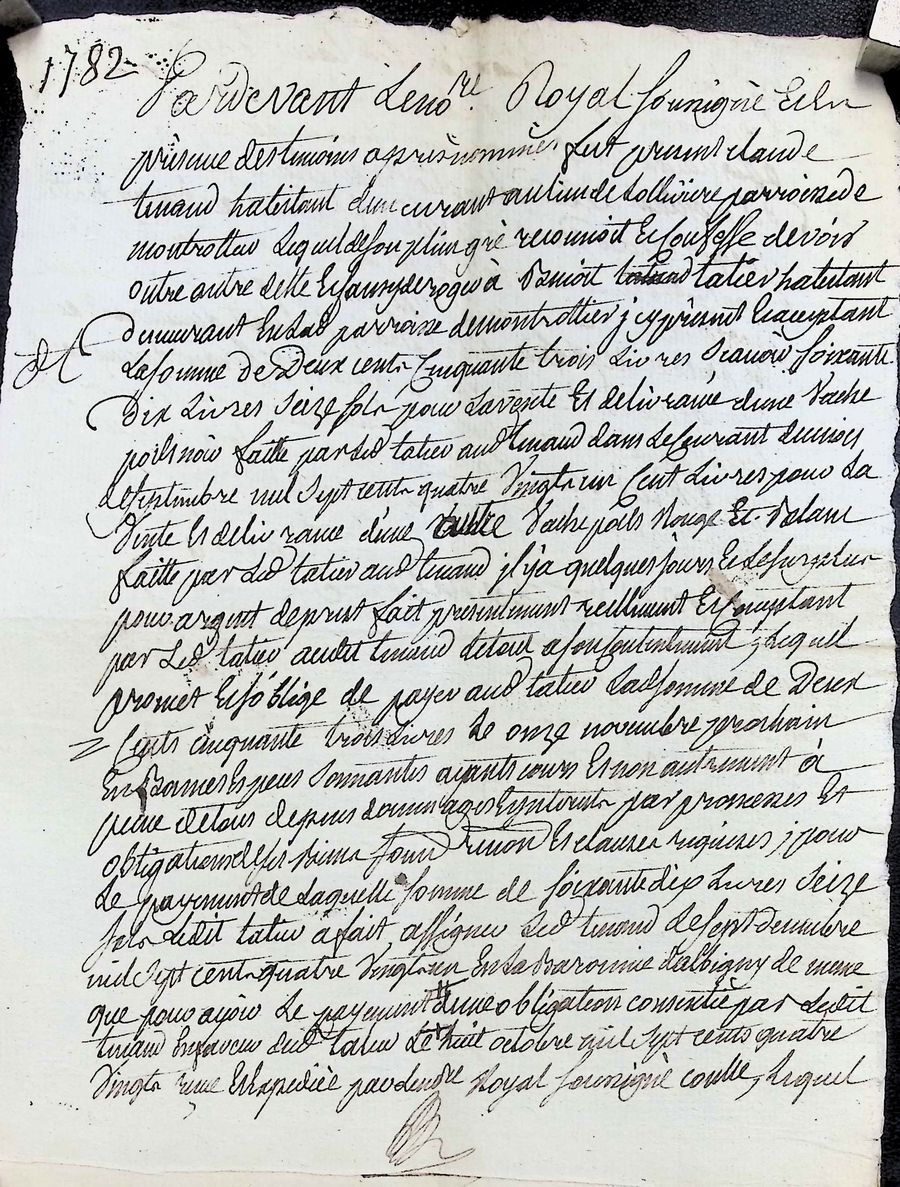 1782
Pardevant Le no.re Royal soussigné Et En
présence des temoins après nommés, fut present claude
tinaud habitant demeurant au lieu de Lolliviere parroisse de
montrottier Lequel de son plein gré reconnoit Et confesse devoir
outre autre dette Et sans y deroger à Benoit tatier habitant
demeurant En Lad parroisse de montrottier jcy présent Et acceptant
La somme de Deux cents Cinquante trois Livres scavoir soixante
Dix Livres seize sols pour La vente Et delivrance d'une vache
poils noir faitte par Led tatier aud tinaud dans Le Courant du mois
de septembre mil sept cents quatre vingts un Cent Livres pour La
vente Et delivrance d'une autre vache poils Rouge Et Blanc
faitte par Led tatier aud tinaud jl y a quelques jours Et Le surplus
pour argent de prest fait presentement reellement Et comptant
par Led tatier audit tinaud de tout a son contentement, Lequel
promet Et s'oblige de payer aud tatier Lad somme de Deux
Cents cinquante trois Livres Le onze novembre prochain
En Bonnes Especes sonnantes ayants cours Et non autrement à
peine de tous depens dommages Et jnterets par promesses Et
obligations de ses Biens soum renon Et clauses requises; pour
Le payement de Laquelle somme de soixante dix Livres seize
sols Ledit tatier a fait assigner Led tinaud Le sept decembre
mil sept cents quatre vingts un En La Baronnie d'albigny de meme
que pour avoir Le payement d'une obligation consentie par Ledit
tinaud En faveur dud tatier Le huit octobre mil sept cents quatre
vingts Et Expediée par Le no.re Royal soussigné Lequel